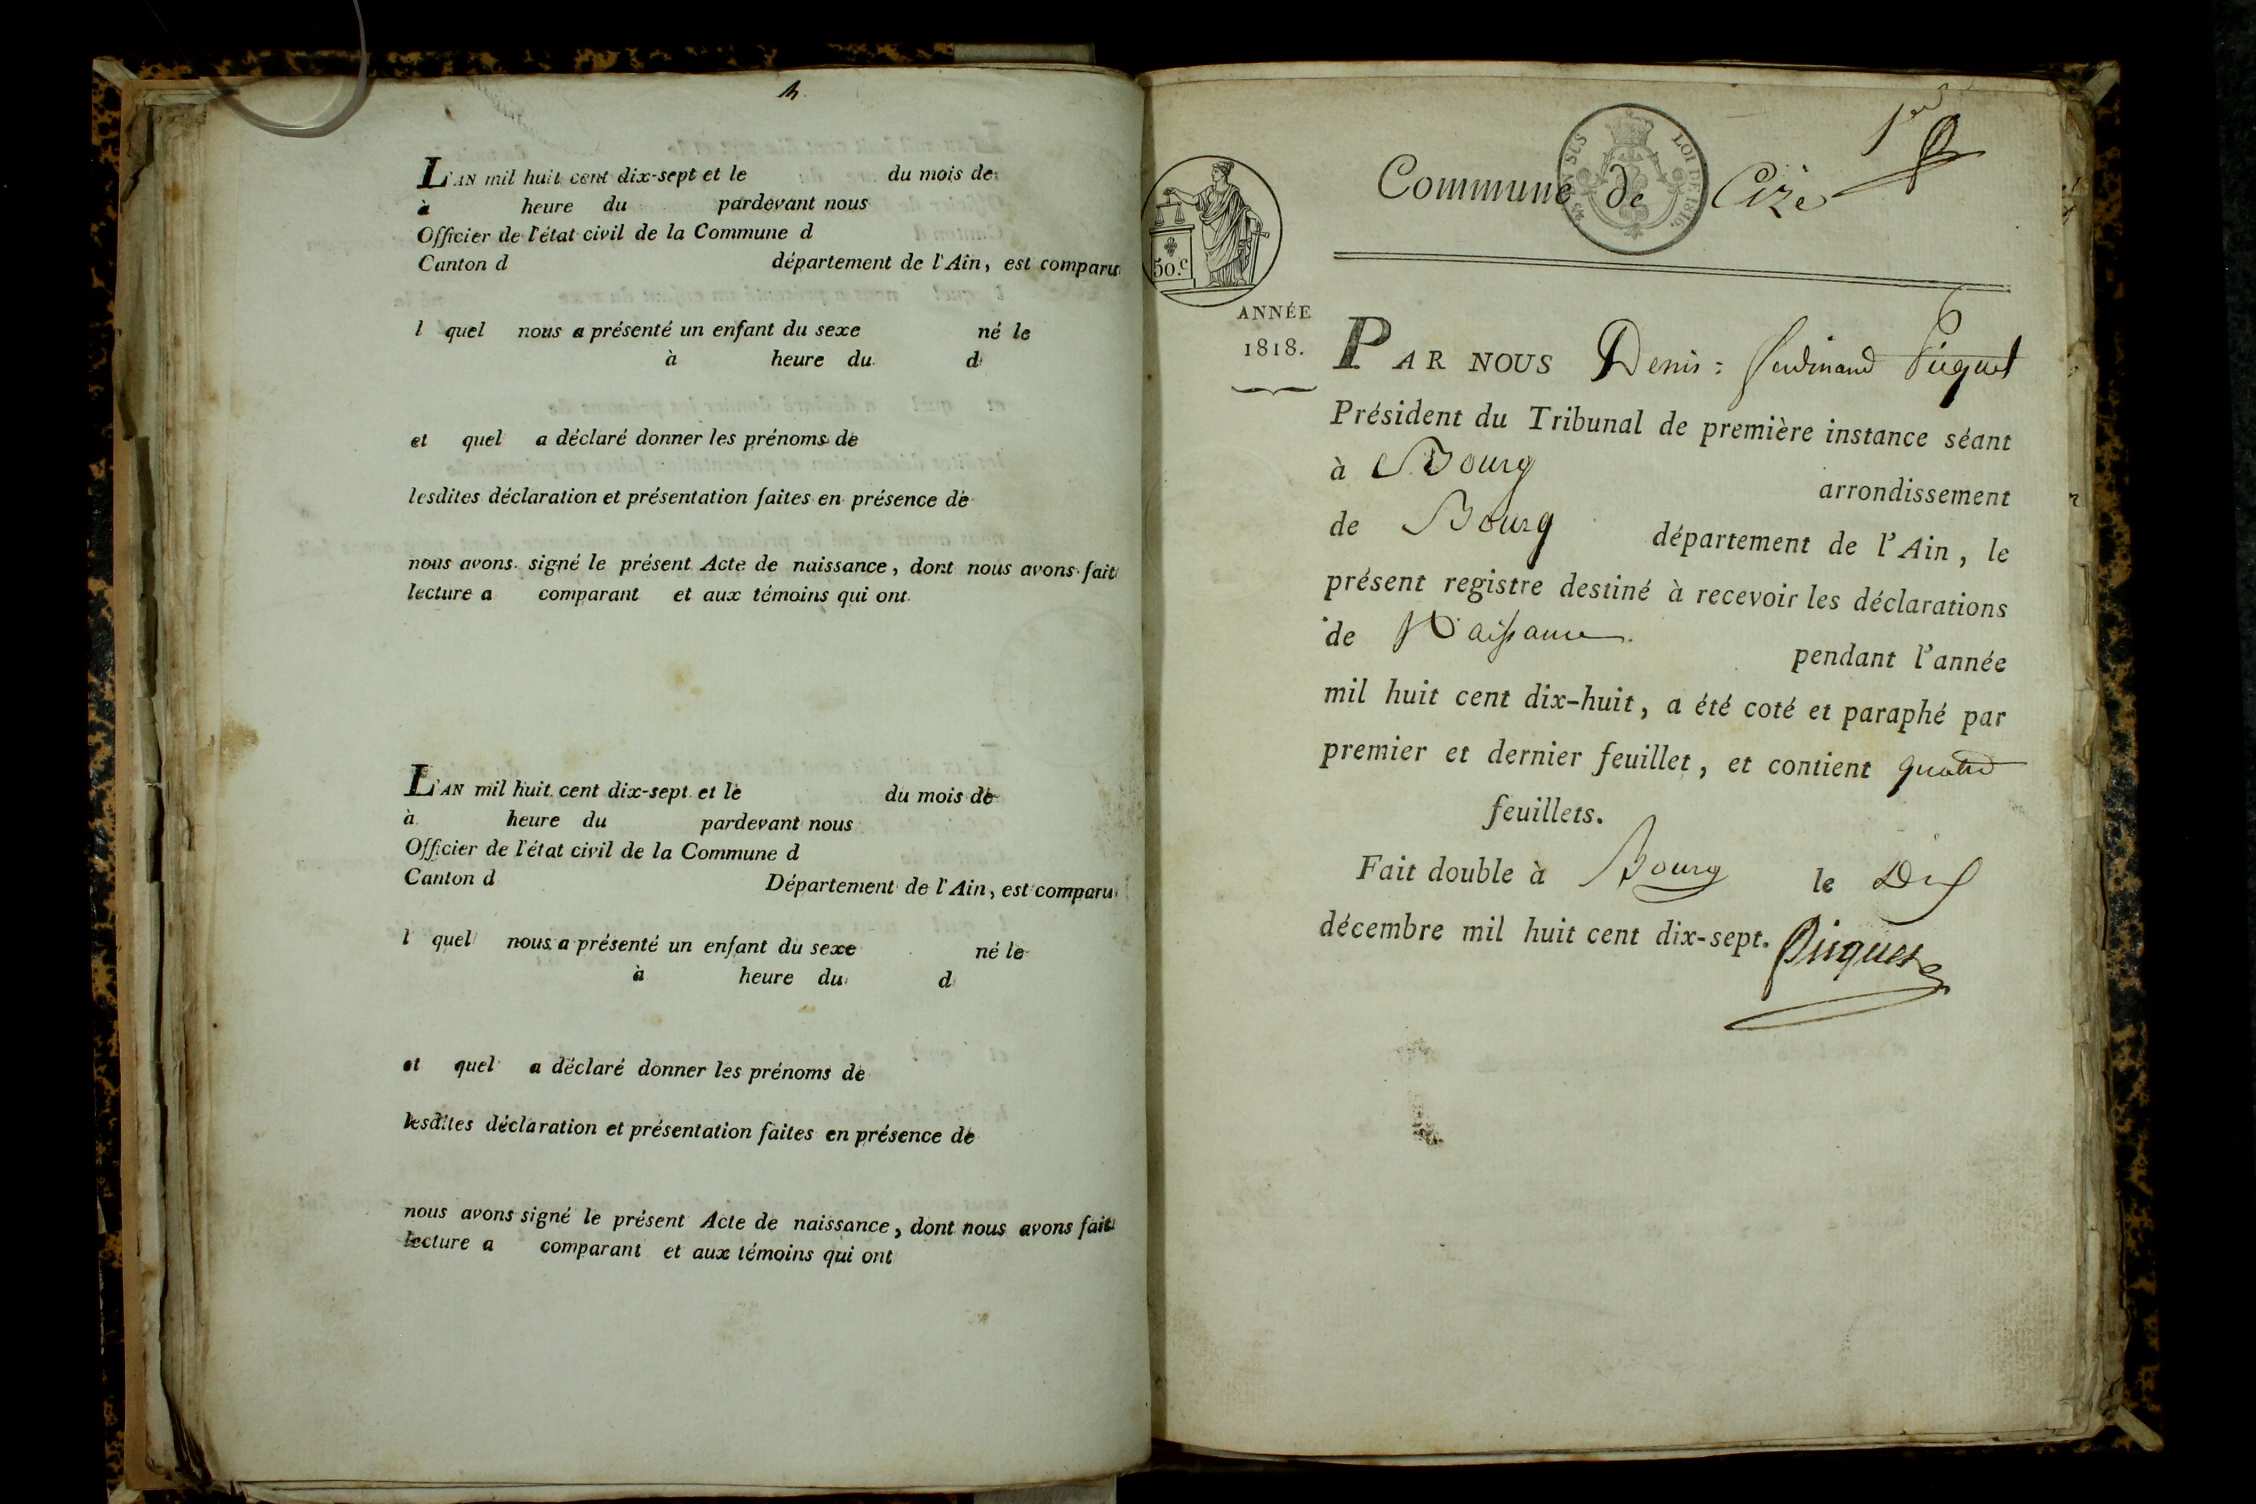 L'AN mil huit cent dix-sept et le du mois de
à heure du pardevant nous
Officier de l'état civil de la Commune d
Canton d département de l'Ain, est comparu
l quel nous a présenté un enfant du sexe né le
à heure du d
et quel a déclaré donner les prénoms de
lesdites déclaration et présentation faites en présence de
nous avons signé le présent Acte de naissance, dont nous avons fait
lecture a comparant et aux témoins qui ont
L'AN mil huit cent dix-sept et le du mois de
à heure du pardevant nous
Officier de l'état civil de la Commune d
Canton d Département de l'Ain, est comparu
l quel nous a présenté un enfant du sexe né le
à heure du d
et quel a déclaré donner les prénoms de
lesdites déclaration et présentation faites en présence de
nous avons signé le présent Acte de naissance, dont nous avons fait
lecture a comparant et aux témoins qui ont
1er
Commune de Cize
LOI DE 1816
50.c
ANNÉE
1818.
PAR NOUS Denis : ferdinand Picquet
Président du Tribunal de première instance séant
à Bourg arrondissement
de Bourg département de l'Ain, le
présent registre destiné à recevoir les déclarations
de Naissance pendant l'année
mil huit cent dix-huit, a été coté et paraphé par
premier et dernier feuillet, et contient quatre
feuillets.
Fait double à Bourg le Dix
décembre mil huit cent dix-sept. Picquet